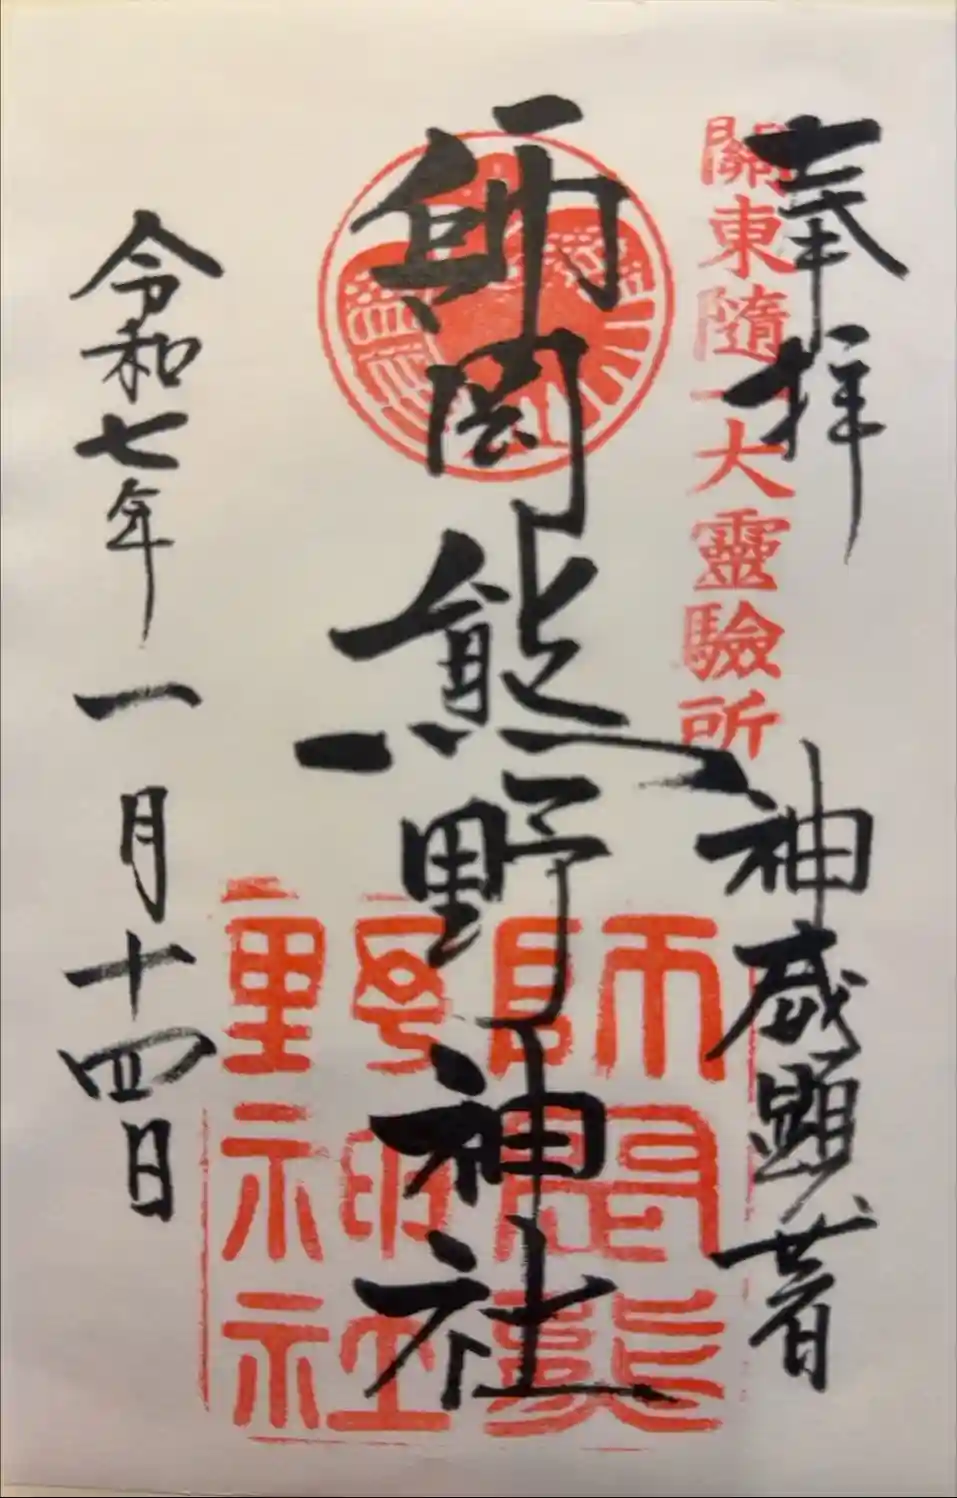 奉拝
關東隨一大靈驗所
神威顕著
師岡熊野神社
師岡熊野神社
令和七年
一月十四日